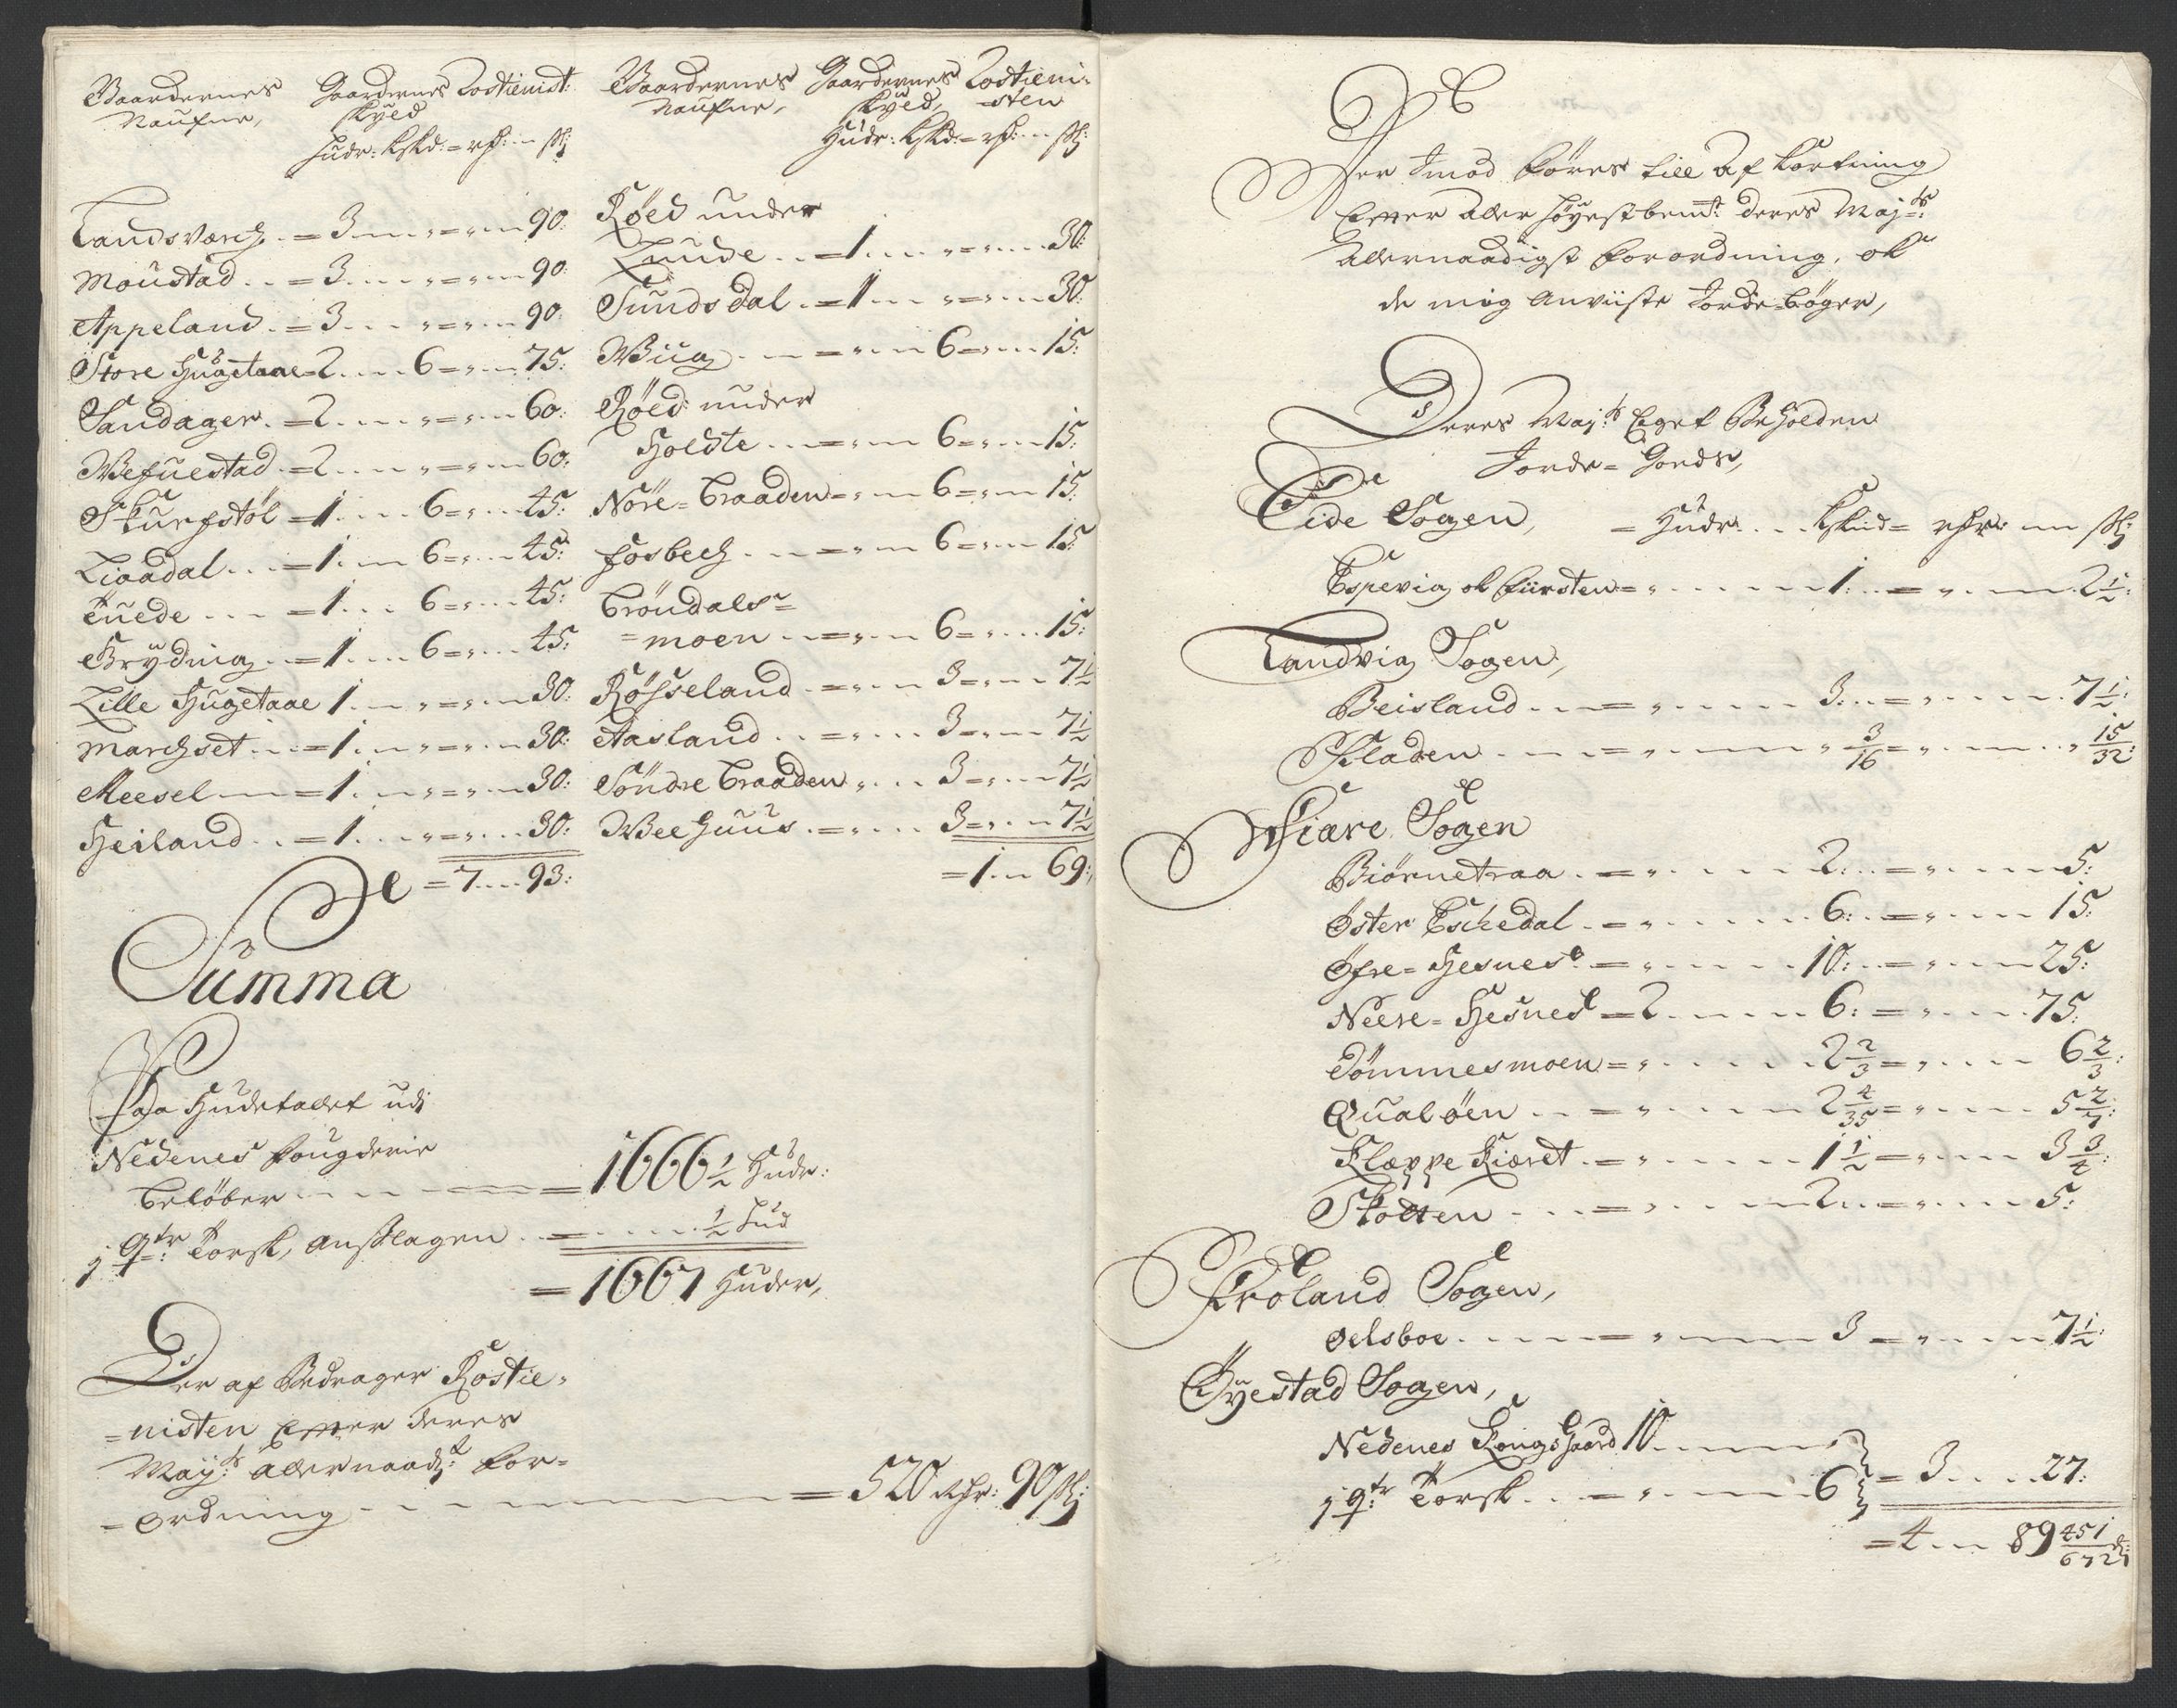 Gaardernes Naufne, Gaardernes Skyed Rostienist:
Hudr: kskd: = rh: ... ß
Landsverch .. = 3 ... " = " ... 90:
Moustad .. = 3 ... " = " ... 90:
Appeland .. = 3 ... " = " ... 90:
Store Hugetaae = 2 ... 6 = " ... 75:
Sandager .. = 2 ... " = " ... 60:
Wefuestad .. = 2 ... " = " ... 60:
Skurfstøl = 1 ... 6 = " ... 45:
Liaadal ... = 1 ... 6 = " ... 45:
Tuede ... = 1 ... 6 = " ... 45:
Gryding .. = 1 ... 6 = " ... 45:
Lille Hugetaae 1 ... " = " ... 30:
Marchset .. = 1 ... " = " ... 30:
Meesel ... = 1 ... " = " ... 30:
Heiland .. = 1 ... " = " ... 30:
= 7 .... 93:
Gaardernes Naufne, Gaardernes Skyed, Rostieni=
=sten
Hudr: kskd: = rh: ... ß
Røed under
Lunde .. = 1 ... " = " ... 30:
Sundsdal .. = 1 ... " = " ... 30:
Wiig ... = " ... 6 = " ... 15:
Røed under
Holdte ... = " ... 6 = " ... 15:
Nøre = Braaden = " ... 6 = " ... 15:
Fosbech ... = " ... 6 = " ... 15:
Trøndals=
=moen ... = " ... 6 = " ... 15:
Røsseland .. = " ... 3 = " ... 7 1/2
Aasland .. = " ... 3 = " ... 7 1/2
Søndre Braaden " ... 3 = " ... 7 1/2
Weehuus .. = " ... 3 = " ... 7 1/2
= 1 ... 69:
Summa
Paa Hudetallet udj
Nedenes fougderie
beløber ... = 1666 1/2 Hudr:
1 qtr: Torsk, anslagen .. = ... 1/2 hud
= 1667 Huder,
Der af Bedrager Rostie=
=nisten Efter deres
Mayts: allernaadt: for=
=ordning ... = 520 rdr: 90 ß
Her Imod føres till Af kortning
Efter aller høyestbemt: deres Mayts:
Allernaadigst forordning, ok
de mig Anviiste Jorde=bøger,
Deres Mayts: Eget Beholden
Jorde = Gods,
Eide Sogen, = Hudr ... kskd = rdr: ... ß
Espevig ok fiirsten = " ... 1: ... = " ... 2 1/2:
Landvig Sogen,
Beisland ... = " ... 3: .. = " ... 7 1/2:
Kladen ... = " ... " 3/16 = " ... " 15/32:
Fiære Sogen
Biørnetraa .. = " ... 2: .. = " ... 5:
Øster Eschedal .. = " ... 6: .. = " ... 15:
Øfre = Hesnes .. = " ... 10: .. = " ... 25:
Neere = Hesnes = 2 ... 6: = " ... 75:
Dømmesmoen = " ... 2 2/3 = " ... 6 2/3:
Qualøen .. = " ... 2 4/35 = " ... 5 2/7:
Klæppe Kiæret .. = " ... 1 1/2 = " ... 3 3/4:
Skotten ... = " ... 2 ... = " ... 5:
Froland Sogen,
Oelsboe ... = " ... 3 = " ... 7 1/2:
Øyestad Sogen,
Nedenes Kongsgaard 10 ... "
1 qtr: Torsk ... = " ... 6 } = 3 ... 27:
= 4 ... 89 451/672